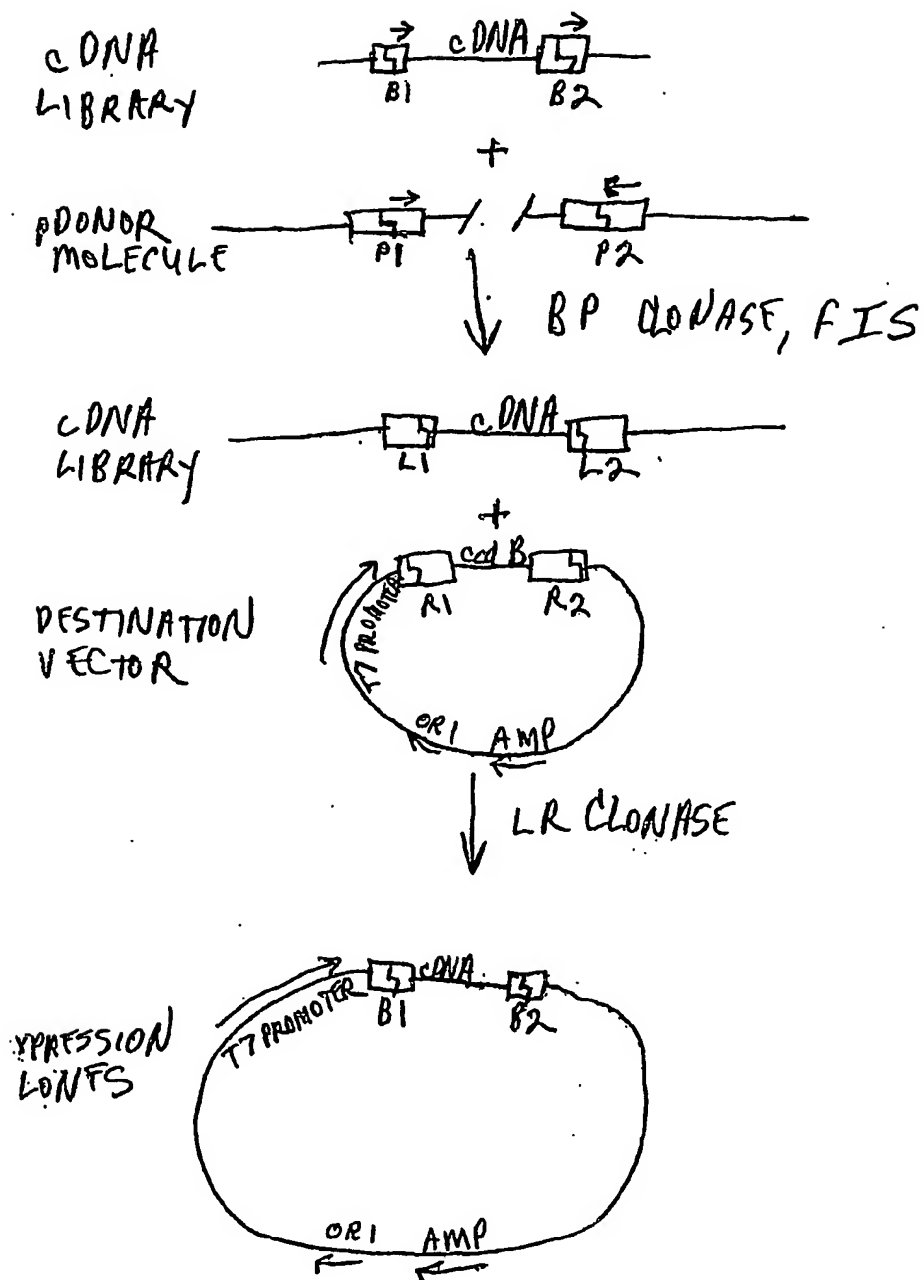 cDNA
LIBRARY
cDNA
B1
B2
+
pDONOR
MOLECULE
P1
P2
BP CLONASE, FIS
cDNA
LIBRARY
cDNA
L1
L2
+
DESTINATION
VECTOR
ccd B
R1
R2
T7 PROMOTER
ORI
AMP
LR CLONASE
XPRESSION
LONES
T7 PROMOTER
cDNA
B1
B2
ORI
AMP